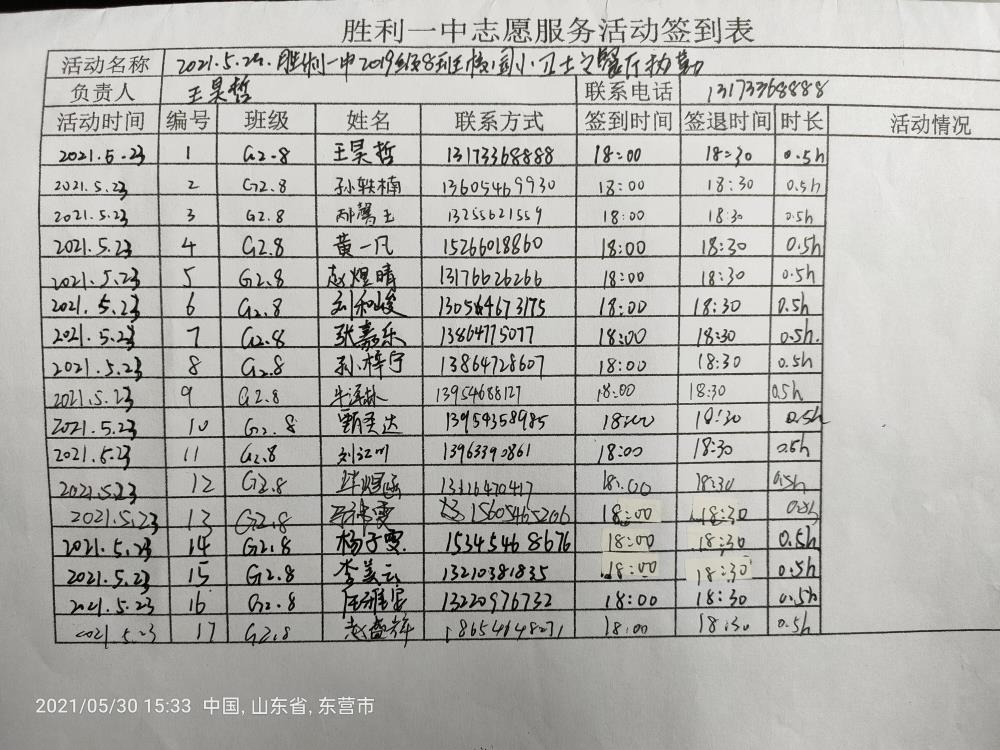 胜利一中志愿服务活动签到表
活动名称 2021.5.2 胜利一中2019级8班校园小卫士之餐厅执勤
负责人 王昊哲 联系电话 13173368888
活动时间 编号 班级 姓名 联系方式 签到时间 签退时间 时长 活动情况
2021.5.23 1 G2.8 王昊哲 13173368888 18:00 18:30 0.5h
2021.5.23 2 G2.8 孙轶楠 13605469930 18:00 18:30 0.5h
2021.5.23 3 G2.8 13255621559 18:00 18:30 0.5h
2021.5.23 4 G2.8 黄一凡 15266018860 18:00 18:30 0.5h
2021.5.23 5 G2.8 赵煜晴 13176626266 18:00 18:30 0.5h
2021.5.23 6 G2.8 刘和俊 13054673175 18:00 18:30 0.5h
2021.5.23 7 G2.8 张嘉乐 13864775077 18:00 18:30 0.5h.
2021.5.23 8 G2.8 孙梓宁 13864728607 18:00 18:30 0.5h
2021.5.23 9 G2.8 13954688127 18:00 18:30 0.5h
2021.5.23 10 G2.8 甄圣达 13954358985 18:00 18:30 0.5h
2021.5.23 11 G2.8 刘江川 13963390861 18:00 18:30 0.5h
2021.5.23 12 G2.8 13316470417 18:00 18:30 0.5h
2021.5.23 13 G2.8 15605465206 18:00 18:30 0.5h
2021.5.23 14 G2.8 杨子雯 15345468676 18:00 18:30 0.5h
2021.5.23 15 G2.8 李美云 13210381835 18:00 18:30 0.5h
2021.5.23 16 G2.8 13220976732 18:00 18:30 0.5h
2021.5.23 17 G2.8 赵盛祥 18654648271 18:00 18:30 0.5h
2021/05/30 15:33 中国,山东省,东营市